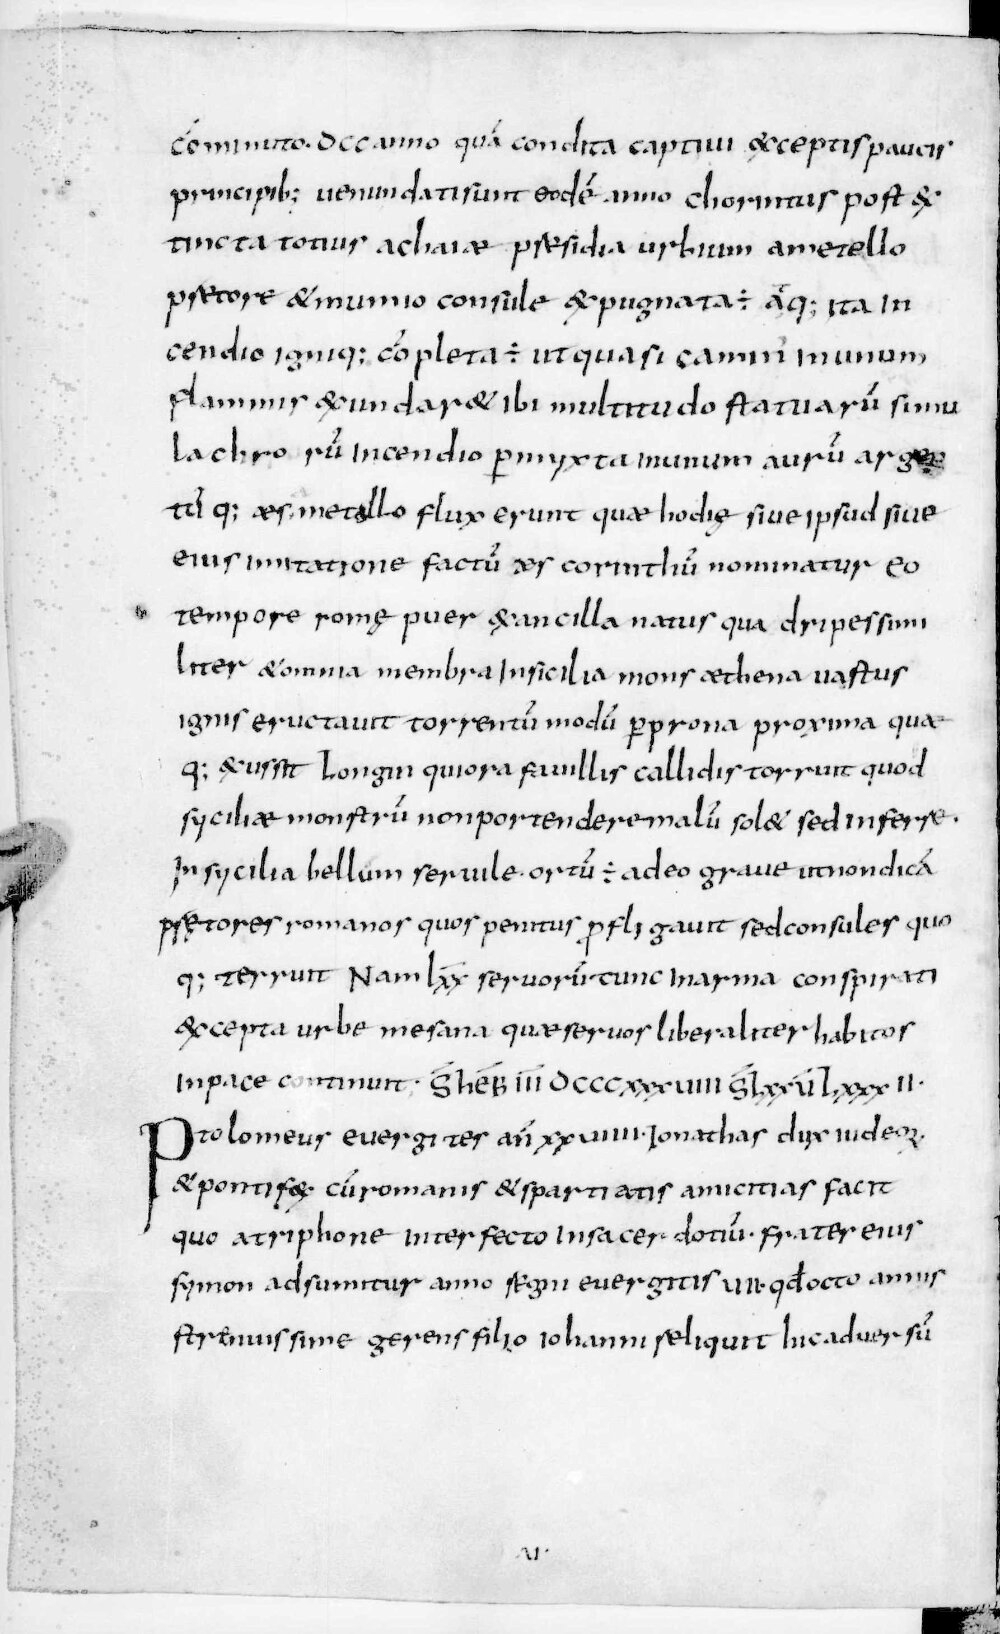 cōminuto. DCC anno quā condita captiui &ceptis paucis
principib; uenundati sunt eodē anno chorintus post &
tincta totius achaiæ præsidia urbium a metello
prætore & mumio consule &pugnata ÷ áq; ita in
cendio igniq; cōpleta ÷ ut quasi camini in unum
flammis &undar& ibi multitudo statuarū simu
lachro rū incendio p̄mixta in unum aurū argen
tū q; æs metallo fluxerunt quæ hodię siue ipsud siue
eius imitatione factū æs corinthiū nominatur eo
tempore romę puer & ancilla natus quadripes simi
liter & omnia membra In sicilia mons æthena uastus
ignis eructauit torrentū modū p̄prona proxima quæ
q; &ussit Longinquiora fauillis callidis torruit quod
syciliæ monstrū non portendere malū sol& sed inferre.
In sycilia bellum seruile. ortū ÷ adeo graue ut non dicā
prętores romanos quos penitus p̄fligauit sed consules quo
q; terruit Nam lxx seruorū tunc in arma conspirati
&cepta urbe mesana quæ seruos liberaliter habitos
in pace continuit. S̄ hēB̄ III DCCCxxxuiiii S̄ lxxū lxxxII.
Ptolomeus euergites an̄ xxuiiii. Ionathas dux iudeoꝝ.
& pontif& cū romanis & spartiatis amicitias facit
quo a triphone interfecto in sacerdotiū. frater eius
symon adsumitur anno regni euergitis uii. qđ octo annis
strenuissime gerens filio iohanni reliquit hic aduersū
AI.